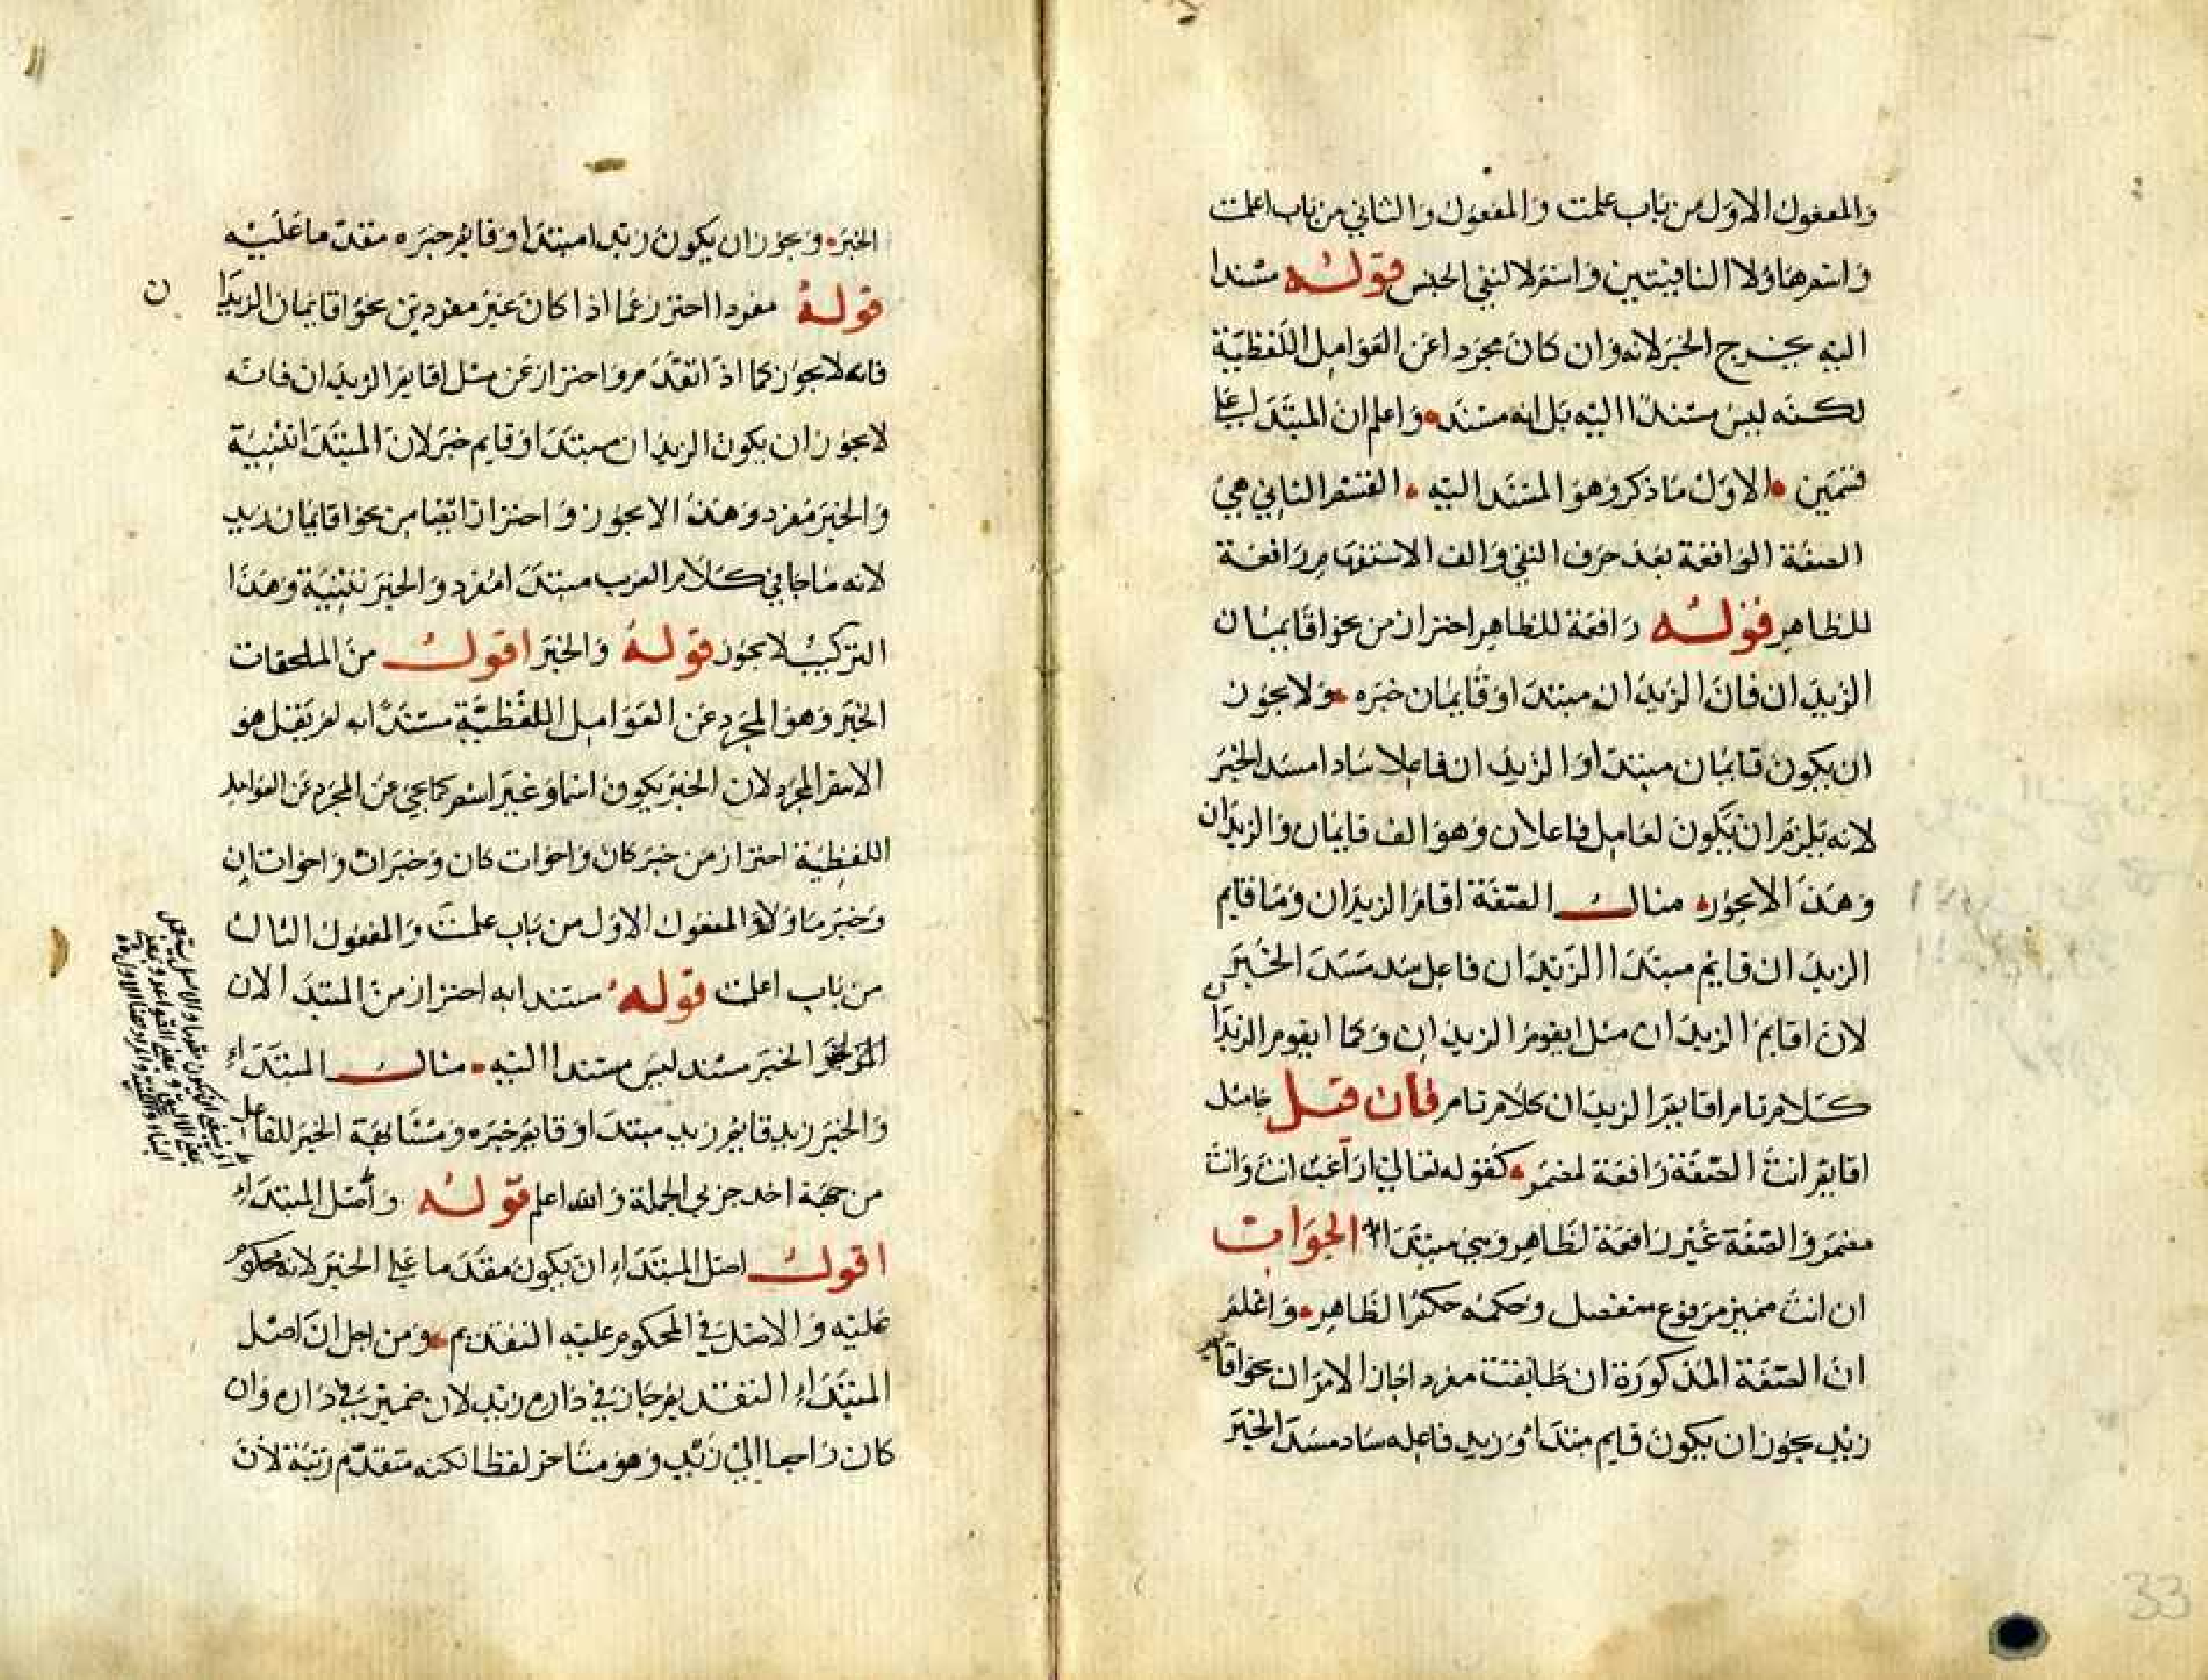 والمفعول الاول من باب علمت والمفعول والثاني من باب اعلمت
واسم ما ولا النافيتين واسم لا لنفي الجنس قوله مسندا
اليه يخرج الخبر لانه وان كان مجردا عن العوامل اللفظية
لكنه ليس مسندا اليه بل انه مسند واعلم ان المبتدا علي
قسمين الاول ما ذكر وهو المسند اليه القسم الثاني هي
الصفة الواقعة بعد حرف النفي والف الاستفهام رافعة
للظاهر قوله رافعة للظاهر احتراز من نحو اقايمان
الزيدان فان الزيدان مبتدا وقايمان خبره ولا يجوز
ان يكون قايمان مبتدا والزيدان فاعلا سادا مسد الخبر
لانه يلزم ان يكون لعامل فاعلان وهو الف قايمان والزيدان
وهذا لا يجوز مثال الصفة اقايم الزيدان وما قايم
الزيدان قايم مبتدا الزيدان فاعل سد مسد الخبر
لان اقايم الزيدان مثل ايقوم الزيدان وكما ايقوم الزيدان
كلام تام اقايم الزيدان كلام تام فان قيل
اقايم انت الصفة رافعة لمضمر كقوله تعالي اراغب انت وانت
مضمر والصفة غير رافعة لظاهر وهي مبتدا الجواب
ان انت ضمير مرفوع منفصل وحكمه حكم الظاهر واعلم
ان الصفة المذكورة ان طابقت مفردا جاز الامران نحو اقايم
زيد يجوز ان يكون قايم مبتدا وزيد فاعله ساد مسد الخبر
33
الخبر ويجوز ان يكون زيد مبتدا وقايم خبره مقدما عليه
قوله مفردا احترز عما اذا كان غير مفردين نحو اقايمان الزيدان
فانه لا يجوز كما اذا تقدم واحتراز عن مثل اقايم الزيدان فانه
لا يجوز ان يكون الزيدان مبتدا وقايم خبر لان المبتدا تثنية
والخبر مفرد وهذا لا يجوز واحتراز ايضا من نحو اقايمان زيد
لانه ما جا في كلام العرب مبتدا مفرد والخبر تثنية وهذا
التركيب لا يجوز قوله والخبر اقول من الملحقات
الخبر وهو المجرد عن العوامل اللفظية مسندا به لم يقل هو
الاسم المجرد لان الخبر يكون اسما وغير اسم كما يجي عن المجرد عن العوامل
اللفظية احتراز من خبر كان واخوات كان وخبر ان واخوات ان
وخبر ما ولا والمفعول الاول من باب علمت والمفعول الثالث
من باب اعلمت قوله مسندا به احتراز من المبتدا لان
الخبر مسند ليس مسندا اليه مثال المبتداء
والخبر زيد قايم زيد مبتدا وقايم خبره ومشابهة الخبر للفاعل
من جهة احد جزيي الجملة والله اعلم قوله واصل المبتداء
اقول اصل المبتداء ان يكون مقدما علي الخبر لانه محكوم
عليه والاصل في المحكوم عليه التقديم ومن اجل ان اصل
المبتداء التقديم جاز في داره زيد لان ضمير في داره وان
كان راجعا الي زيد وهو متاخر لفظا لكنه متقدم رتبة لان